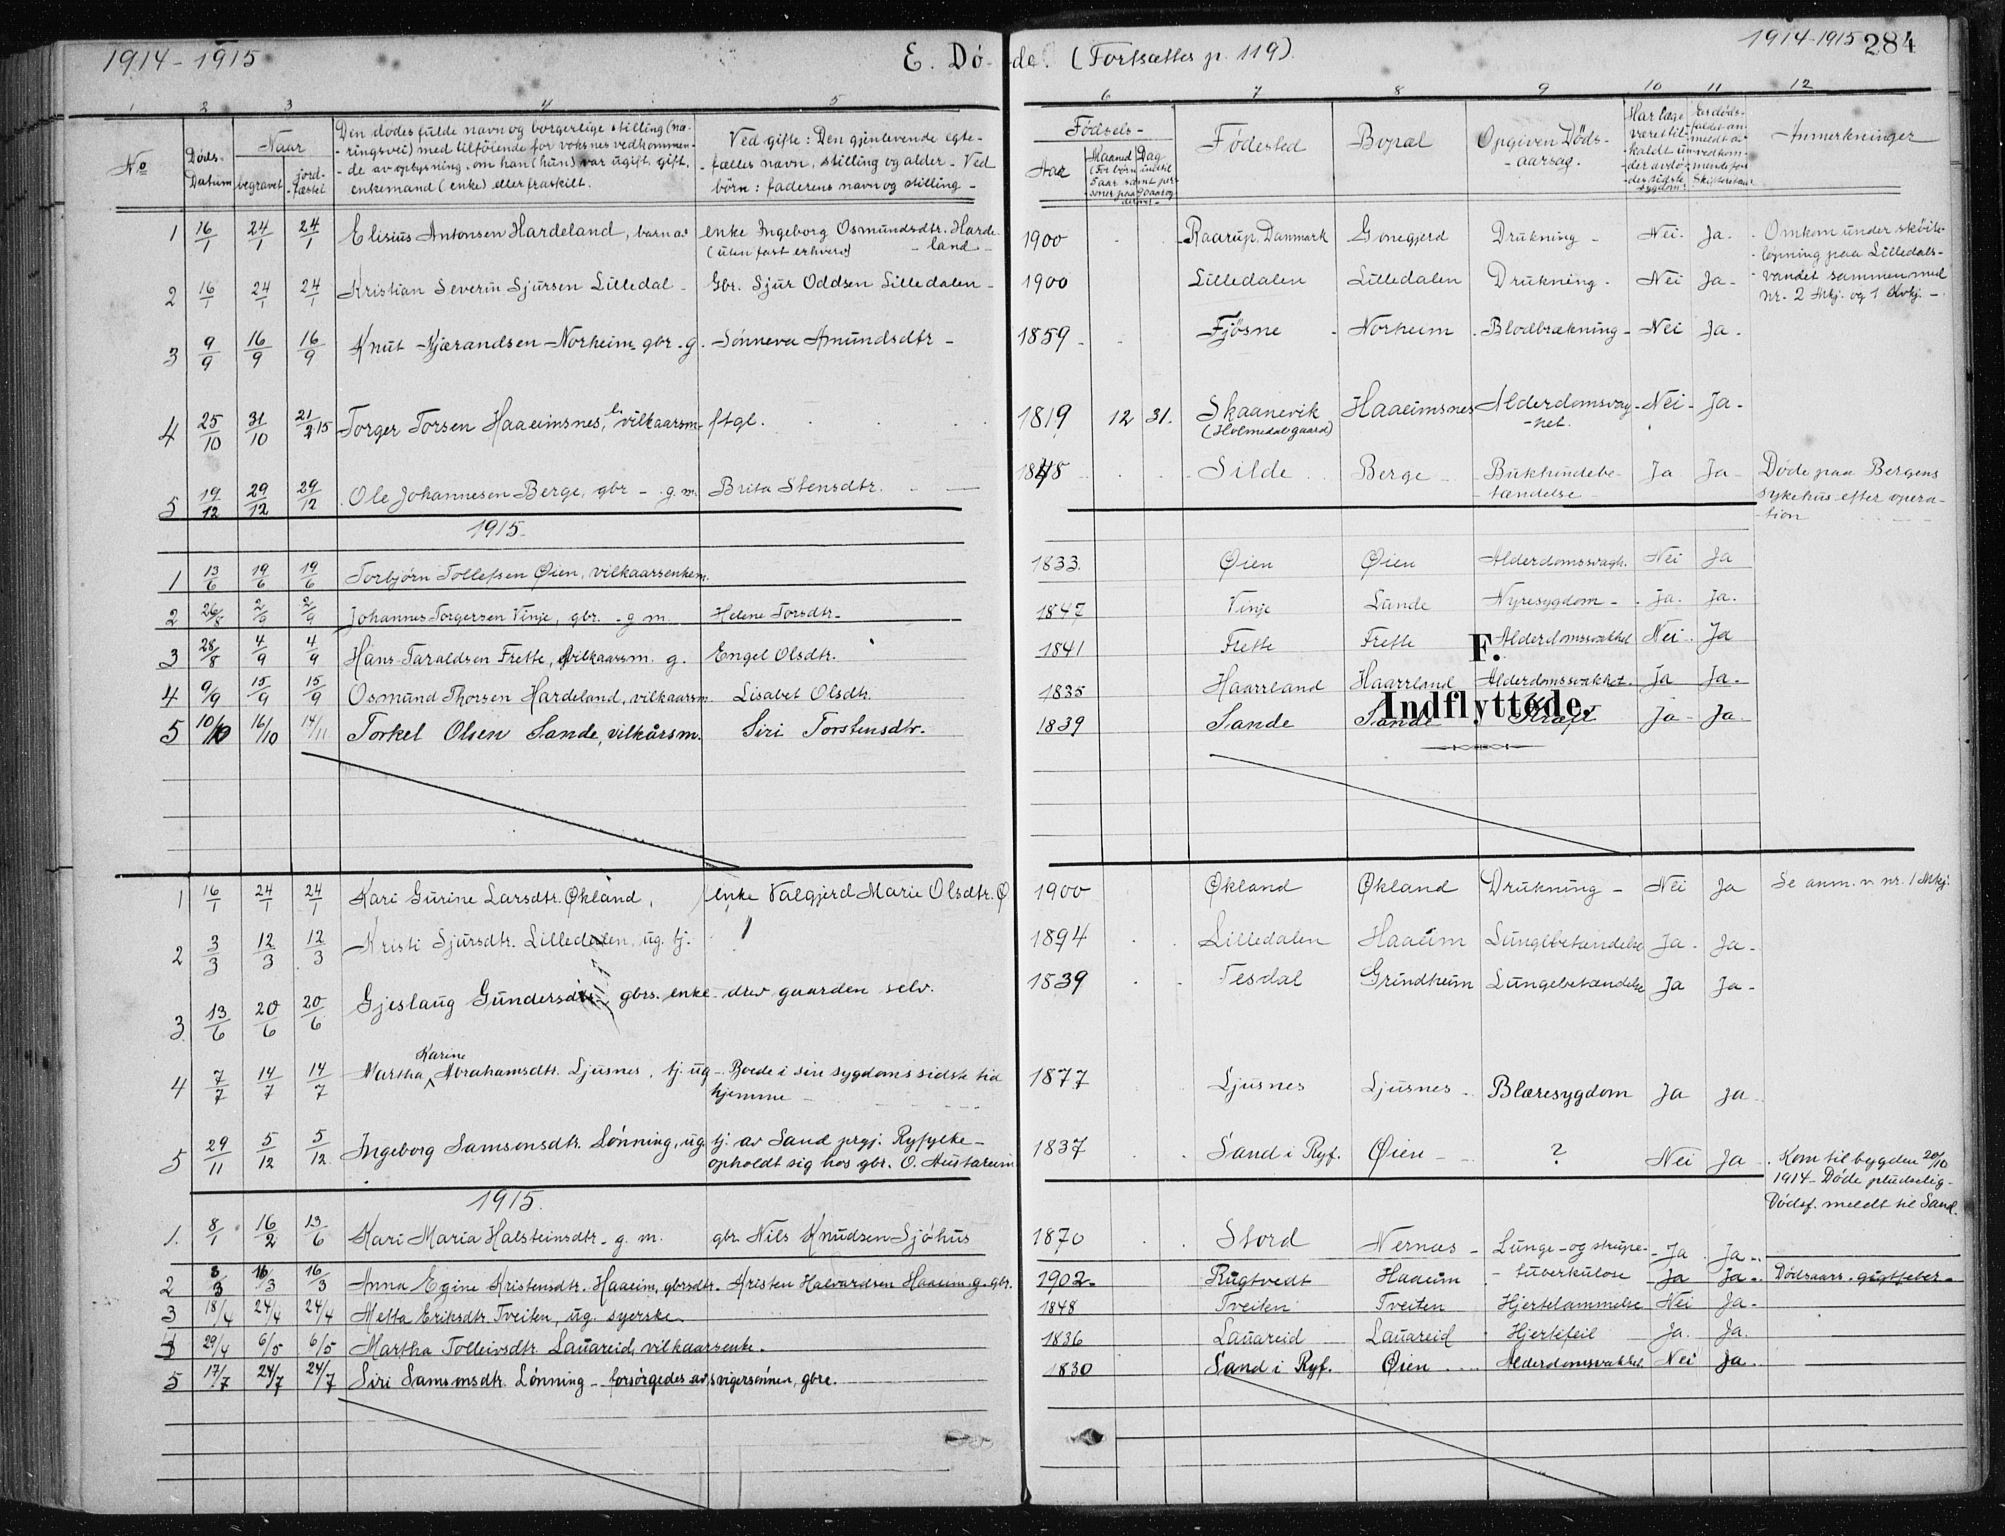 1914-1915
E. Dö de. (Fortsættes p. 119).
1914-1915 284
1 2 3 4 5 6 7 8 9 10 11 12
No
Döds-Datum
Naar
begravet
jord-fæstet
Den dødes fulde navn og borgerlige stilling (næ-
-ringsvei) med tilföiende for voksnes vedkommen-
-de av oplysning, om han (hun) var ugift, gift,
enkemand (enke) eller fraskilt.
Ved gifte: Den gjenlevende egte-
fælles navn, stilling og alder - Ved
börn: faderens navn og stilling -
Födsels-
Aar
Maaned
Dag
Fødested
Bopæl
Opgiven Döds-
-aarsag.
Anmerkninger
1 16/1 24/1 24/1 Elisius Antonsen Hardeland, barn av enke Ingeborg Osmundsdtr. Harde- 1900 Raarup, Danmark Gonegjerd Drukning - Nei. Ja. Omkom under skøite-
(uten fast erhverv) - land - løpning paa Lilledals-
2 16/1 24/1 24/1 Kristian Severin Sjursen Lilledal - Gbr. Sjur Oddsen Lilledalen - 1900 Lilledalen Lilledalen Drukning - Nei Ja - vandet sammen med
nr. 2 Mkj. og 1 Kvkj. -
3 9/9 16/9 16/9 Knut Kjærandsen Norheim, gbr. g. Sönneva Amundsdtr - 1859 - Fjösne Norheim Blodbrækning - Nei Ja -
4 25/10 31/10 21/3 15 Torger Torsen Haaeimsnes, vilkaarsm. ftgl. 1819 12 31. Skaanevik Haaeimsnes Alderdomsvag- Nei - Ja -
(Holmedal gaard) -het.
5 19/12 29/12 29/12 Ole Johannesen Berge, gbr - g. m. Brita Stensdtr. 1848 Silde Berge Bukhindebe- Ja Ja Døde paa Bergens
-tændelse sykehus efter opera-
-tion
1915.
1 13/6 19/6 19/6 Torbjørn Tollefsen Øien, vilkaarsenkem. 1833. Øien Øien Alderdomssvagh. Nei Ja
2 26/8 2/9 2/9 Johannes Torgersen Vinje, gbr. - g m. Helene Torsdtr. 1847 Vinje Lunde Nyresygdom - Ja. Ja.
3 28/8 4/9 4/9 Hans Taraldsen Frette, vilkaarsm. g. Engel Olsdtr. 1841 Frette Frette Alderdomssvakhet Nei. Ja
F.
4 9/9 15/9 15/9 Osmund Thorsen Hardeland, vilkaarsm Lisabet Olsdtr. 1835 Haarrland Haarrland Alderdomssvakhet. Ja Ja.
Indflyttede.
5 10/10 16/10 14/11 Torkel Olsen Sande, vilkårsm. Siri Torstensdtr. 1839 Sande Sande Kræft Ja - Ja
1 16/1 24/1 24/1 Kari Gurine Larsdtr. Økland, enke Valgjerd Marie Olsdtr. Ø 1900 Økland Økland Drukning - Nei Ja Se anm. v. nr. 1 Mkj.
2 3/3 12/3 12/3 Kristi Sjursdtr. Lilledalen, ug. tj. 1894 Lilledalen Haaeim Lungebetændelse Ja - Ja -
3 13/6 20/6 20/6 Gjeslaug Gundersdtr. gbrs. enke - drev gaarden selv. 1839 Tesdal Grindheim Lungebetændelse Ja Ja -
4 7/7 14/7 14/7 Martha Karine Abrahamsdtr. Ljusnes, tj. ug - Boede i sin sygdoms sidste tid 1877 Ljusnes Ljusnes - Blæresygdom Ja Ja
hjemme -
5 29/11 5/12 5/12 Ingeborg Samsonsdtr. Lönning, ug. tj. av Sand prgj. Ryfylke - 1837 Sand i Ryf. Øien - ? Nei Ja - Kom til bygden 20/10
opholdt sig hos gbr. O. Austarheim 1914 - Døde pludselig -
Dödsf. meldt til Sand.
1915.
1. 8/1 16/2 13/6 Kari Maria Halsteinsdtr - g. m. gbr. Nils Knudsen Sjöhus 1870 Stord Nernæs - Lunge - og strupe- Ja Ja -
tuberkulose
2 8/3 16/3 16/3 Anna Egine Kristensdtr. Haaeim, gbrsdtr. Kristen Halvardsen Haaeim g. gbr. 1902 - Rugtvedt Haaeim Ja Ja - Dødsaars. gigtfeber -
3 18/4 24/4 24/4 Metta Eriksdtr. Tveiten, ug. syerske 1848 Tveiten Tveiten Hjertelammelse Nei Ja -
4 29/4 6/5 6/5 Martha Tolleivsdtr. Lauareid, vilkaarsenke. 1836 Lauareid Lauareid Hjertefeil Ja. Ja.
5 17/7 24/7 24/7 Siri Samsonsdtr. Lönning - forsörgedes av svigersönnen, gbre. 1830 Sand i Ryf. Øien Alderdomssvakhet. Nei Ja -